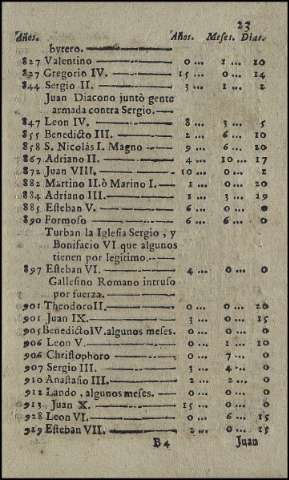 23
Años. Años. Meses. Dias.
bytero.
827 Valentino — 0 ... 1 ... 10
827 Gregorio IV. — 15 ... 0 ... 14
844 Sergio II. — 3 ... 1 ... 2
Juan Diacono juntò gente
armada contra Sergio.
847 Leon IV. — 8 ... 3 ... 5
855 Benedicto III. — 2 ... 6 ... 10
858 S. Nicolás I. Magno — 9 ... 6 ... 20
867 Adriano II. — 4 ... 10 ... 17
872 Juan VIII. — 10 ... 0 ... 2
882 Martino II. ò Marino I. — 1 ... 0 ... 20
884 Adriano III. — 1 ... 3 ... 19
885 Esteban V. — 6 ... 0 ... 0
890 Formoso — 6 ... 6 ... 0
Turban la Iglesia Sergio, y
Bonifacio VI que algunos
tienen por legitimo.
897 Esteban VI. — 4 ... 0 ... 0
Gallesino Romano intruso
por fuerza.
901 Theodoro II. — 0 ... 0 ... 20
901 Juan IX. — 3 ... 0 ... 15
905 Benedicto IV. algunos meses. — 0 ... 0 ... 0
906 Leon V. — 0 ... 1 ... 10
906 Christophoro — 0 ... 7 ... 0
907 Sergio III. — 3 ... 4 ... 0
910 Anastasio III. — 2 ... 2 ... 0
912 Lando, algunos meses. — 0 ... 0 ... 0
913 Juan X. — 15 ... 0 ... 0
928 Leon VI. — 0 ... 6 ... 15
929 Esteban VII. — 2 ... 0 ... 15
B4 Juan